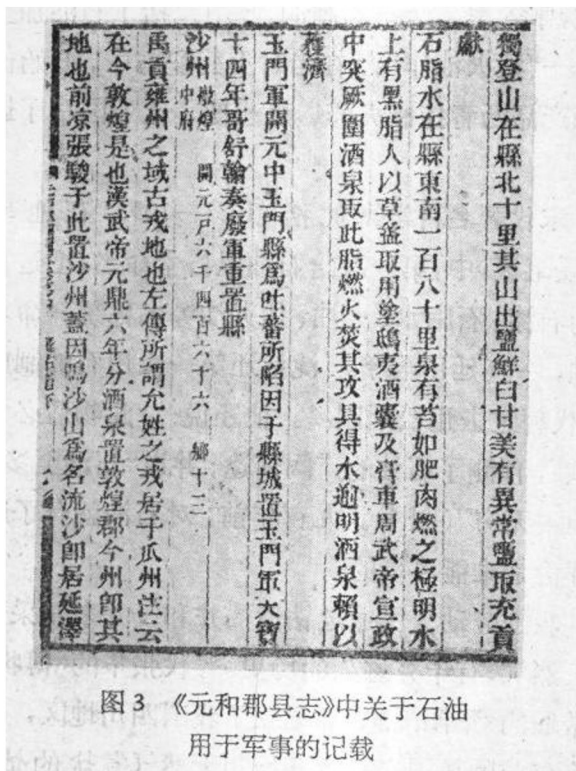 獨登山在縣北十里其山出鹽鮮白甘美有異常鹽取充貢
獻
石脂水在縣東南一百八十里泉有苔如肥肉燃之極明水
上有黑脂人以草盝取用塗鴟夷酒囊及膏車周武帝宣政
中突厥圍酒泉取此脂燃火焚其攻具得水逾明酒泉賴以
獲濟
玉門軍開元中玉門縣爲吐蕃所陷因于縣城置玉門軍天寶
十四年哥舒翰奏廢軍重置縣
沙州 燉煌 中府 開元戸六千四百六十六 鄉十三
禹貢雍州之域古戎地也左傳所謂允姓之戎居于瓜州注云
在今敦煌是也漢武帝元鼎六年分酒泉置敦煌郡今州卽其
地也前凉張駿于此置沙州蓋因鳴沙山爲名流沙卽居延澤
图3 《元和郡县志》中关于石油
用于军事的记载